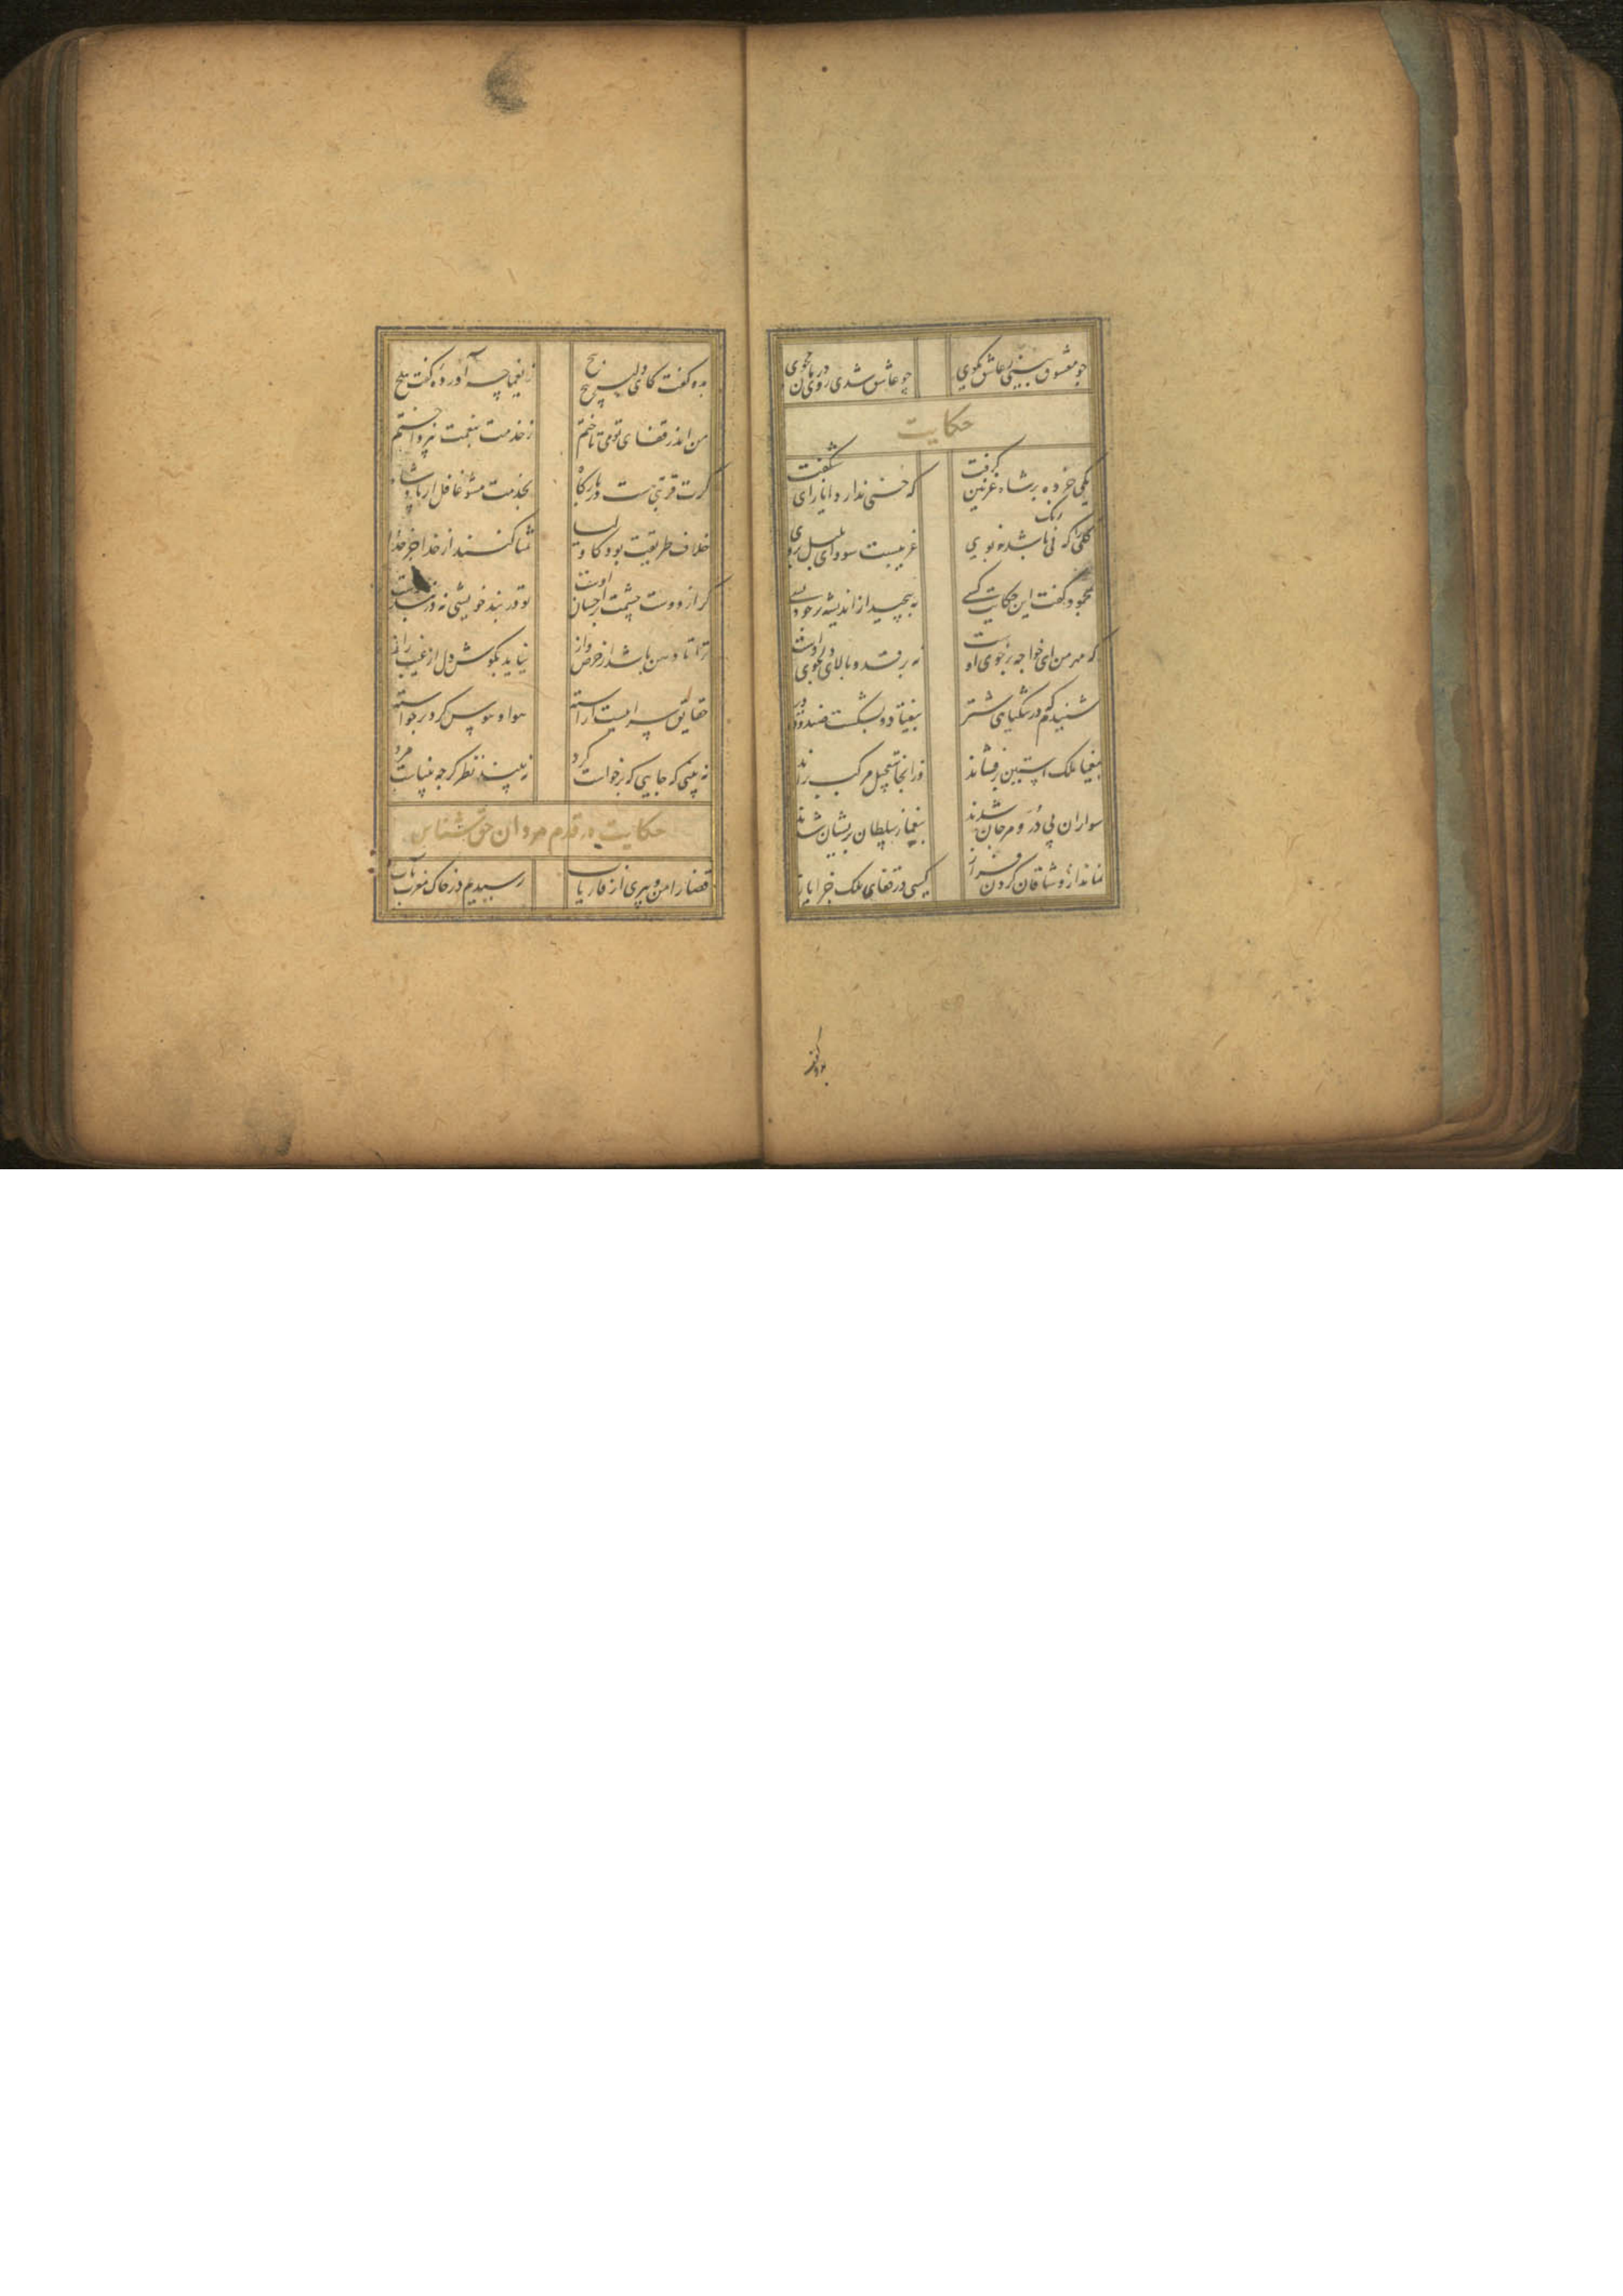 چو معشوق بینی بعاشق مگوی چو عاشق شدی روی
حکایت
یکی خرده بر شاه غزنین گرفت که حسنی ندارد ایاز ای شگفت
گلی را که نی رنگ باشد نه بوی غریبست سودای بلبل بروی
بمحمود گفت این حکایت کسی بپیچید از اندیشه بر خود بسی
که مهر من ای خواجه بر خوی اوست نه بر قد و بالای دلجوی اوست
شنیدم که در تنگنای شتر بیفتاد و بشکست صندوق در
بیغما ملک آستین برفشاند وز آنجا بتعجیل مرکب براند
سواران پی در و مرجان شدند بیغما ز سلطان پریشان شدند
نماند از وشاقان گردن فراز کسی در قفای ملک جز ایاز
بدو گفت
بدو گفت کای دلبر پیچ پیچ ز یغما چه آورده گفت هیچ
من اندر قفای تو می تاختم ز خدمت بنعمت نپرداختم
گرت قربتی هست در بارگاه بخدمت مشو غافل از پادشاه
خلاف طریقت بود کاولیا تمنا کنند از خدا جز خدا
گر از دوست چشمت بر احسان اوست تو در بند خویشی نه در بند دوست
ترا تا دهن باشد از حرص باز نیاید بگوش دل از غیب راز
حقایق سراییست آراسته هوا و هوس گرد برخاسته
نه بینی که جایی که برخاست گرد نبیند نظر گرچه بیناست مرد
حکایت در قدم مردان حق شناس
قضا را من و پیری از فاریاب رسیدیم در خاک مغرب بآب